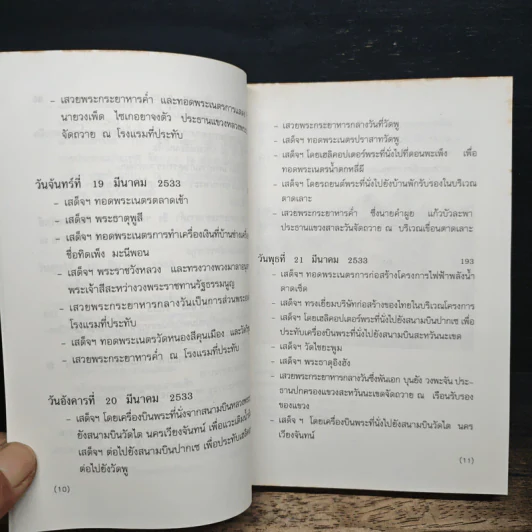 - เสวยพระกระยาหารค่ำ และทอดพระเนตรการแสดง
นายวงเพ็ต ไซเกอยาจงตัว ประธานแขวงหลวงพระ
จัดถวาย ณ โรงแรมที่ประทับ
วันจันทร์ที่ 19 มีนาคม 2533
- เสด็จฯ ทอดพระเนตรตลาดเช้า
- เสด็จฯ พระธาตุพูสี
- เสด็จฯ ทอดพระเนตรการทำเครื่องเงินที่บ้านช่าง
ชื่อทิตเพ็ง มะนีพอน
- เสด็จฯ พระราชวังหลวง และทรงวางพวงมาลา
พระเจ้าสีสะหว่างวงพระราชทานรัฐธรรมนูญ
- เสวยพระกระยาหารกลางวันเป็นการส่วนพระ
โรงแรมที่ประทับ
- เสด็จฯ ทอดพระเนตรวัดหนองสีคูนเมือง และ
- เสวยพระกระยาหารค่ำ ณ โรงแรมที่ประทับ
วันอังคารที่ 20 มีนาคม 2533
- เสด็จฯ โดยเครื่องบินพระที่นั่งจากสนามบินหลวงพระ
ยังสนามบินวัดไต นครเวียงจันทน์ เพื่อแวะเติมน้ำ
เสด็จฯ ต่อไปยังสนามบินปากเซ เพื่อประทับ
ต่อไปยังวัดพู
(10)
- เสวยพระกระยาหารกลางวันที่วัดพู
- เสด็จฯ ทอดพระเนตรปราสาทวัดพู
- เสด็จฯ โดยเฮลิคอปเตอร์พระที่นั่งไปที่ดอนพะเพ็ง เพื่อ
ทอดพระเนตรน้ำตกหลี่ผี
- เสด็จฯ โดยรถยนต์พระที่นั่งไปยังบ้านพักรับรองในบริเวณ
ตาดเลาะ
- เสวยพระกระยาหารค่ำ ซึ่งนายคำผูย แก้วบัวละพา
ประธานแขวงสาละวันจัดถวาย ณ บริเวณเขื่อนตาดเลาะ
วันพุธที่ 21 มีนาคม 2533 193
- เสด็จฯ ทอดพระเนตรการก่อสร้างโครงการไฟฟ้าพลังน้ำ
ตาดเซ็ด
- เสด็จฯ ทรงเยี่ยมบริษัทก่อสร้างของไทยในบริเวณโครงการ
- เสด็จฯ โดยเฮลิคอปเตอร์พระที่นั่งไปยังสนามบินปากเซ เพื่อ
ประทับเครื่องบินพระที่นั่งไปยังสนามบินสะหวันนะเขด
- เสด็จฯ วัดไซยะพูม
- เสด็จฯ พระธาตุอิงฮัง
- เสวยพระกระยาหารกลางวันซึ่งพันเอก บุนยัง วงพะจัน ประ-
ธานปกครองแขวงสะหวันนะเขตจัดถวาย ณ เรือนรับรอง
ของแขวง
- เสด็จ ฯ โดยเครื่องบินพระที่นั่งไปยังสนามบินวัดไต นคร
เวียงจันทน์
(11)